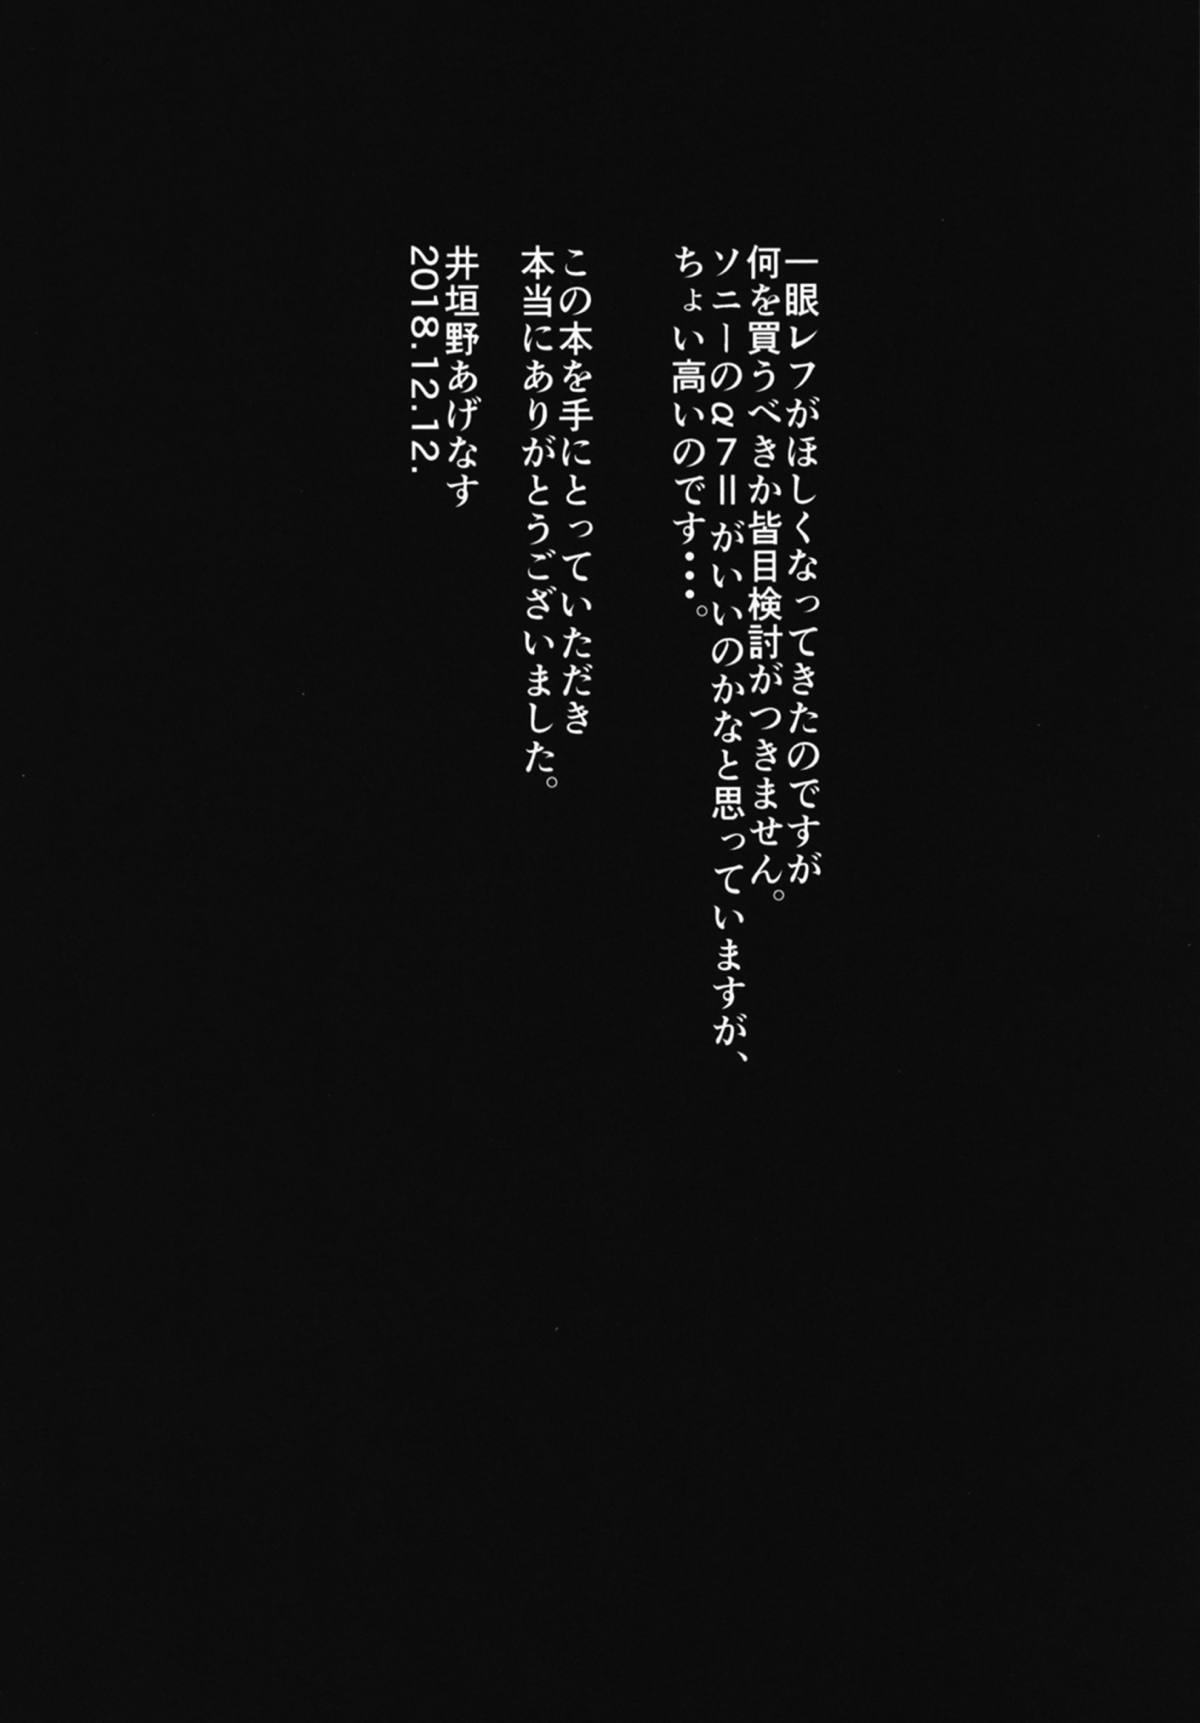 一眼レフがほしくなってきたのですが
何を買うべきか皆目検討がつきません。
ソニーのα7Ⅱがいいのかなと思っていますが、
ちょい高いのです・・・。
この本を手にとっていただき
本当にありがとうございました。
井垣野あげなす
2018.12.12.